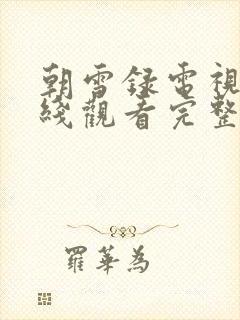 朝雪録電視
綫觀看完整
羅華為